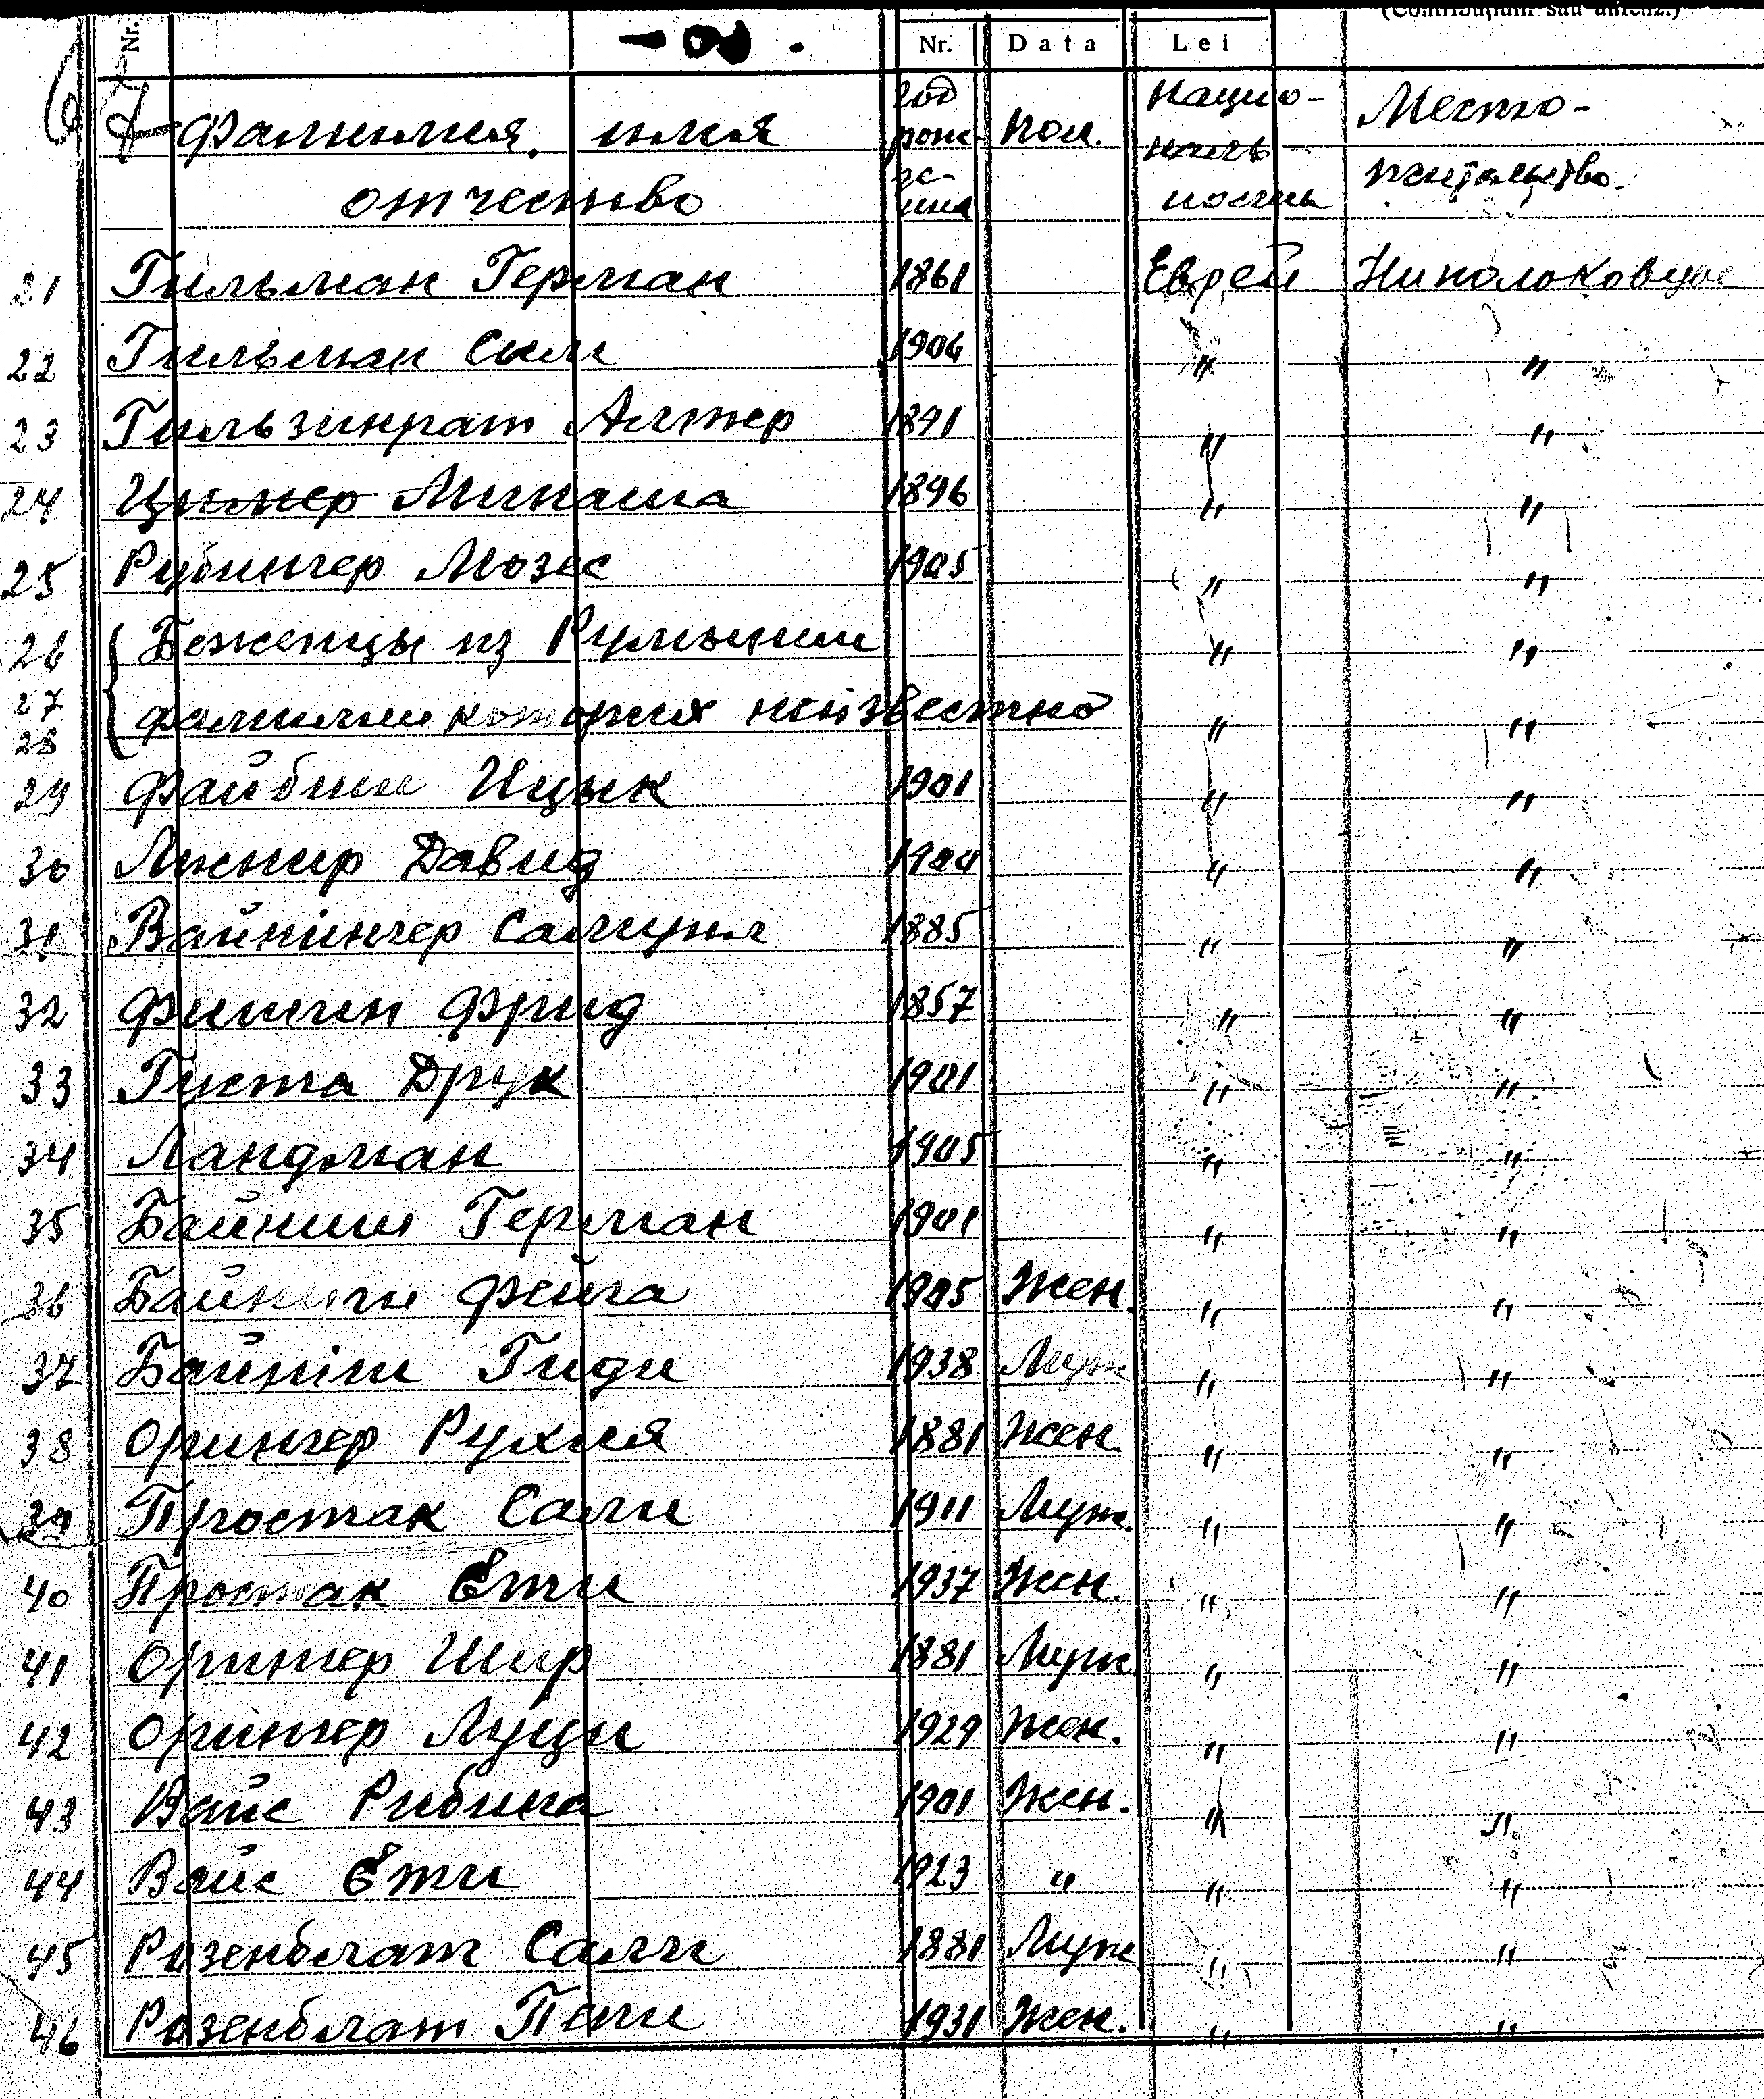 Nr. Nr. Data Lei (Contribuțiuni sau amenz.)
67 Фамилия, имя год рож- пол. нацио- Место-
отчество де- ния наль ность жительство.
21 Гильман Герман 1861 Еврей Ниполоковцы
22 Гильман Сали 1906 " "
23 Гильзинрат Алтер 1891 " "
24 Цимер Минаша 1896 " "
25 Рубингер Мозес 1905 " "
26 Беженцы из Румынии " "
27 28 фамилии которых неизвестно " "
29 Файбиш Ицык 1901 " "
30 Давид " "
31 Вайнингер Самуил 1885 " "
32 Фрид 1857 " "
33 Густа Друк 1901 " "
34 Ландман 1905 " "
35 Байниш Герман 1901 " "
36 Байниш Фейга 1905 Жен. " "
37 Байніш Гиди 1938 Муж " "
38 Орингер Рухля 1881 Жен. " "
39 Простак Сали 1911 Муж. " "
40 Простак Етти 1937 Жен. " "
41 Орингер Шир 1881 Муж. " "
42 Орингер Луци 1929 Жен. " "
43 Вайс Рибина 1901 Жен. " "
44 Вайс Етти 1923 " " "
45 Розенблат Сали 1881 Муж " "
46 Розенблат Пепи 1931 Жен. " "